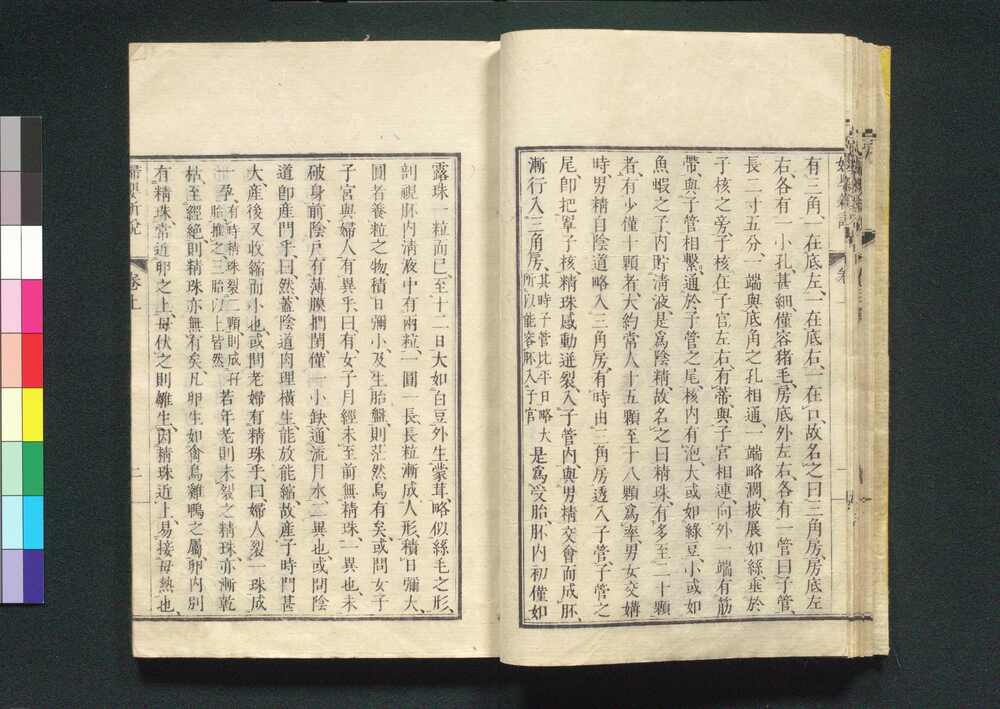 有三角、一在底左、一在底右、一在口、故名之曰三角房、房底左
右、各有一小孔、甚細、僅容猪毛、房底外左右、各有一管曰子管、
長二寸五分、一端與底角之孔相通、一端略濶、披展如絲垂於
子核之旁、子核在子宮左右、有蒂與子宮相連、向外一端有筋
帶、與子管相繫、通於子管之尾、核内有泡、大或如綠豆、小或如
魚蝦之子、内貯清液、是爲陰精、故名之曰精珠、有多至二十顆
者、有少僅十顆者、大約常人十五顆至十八顆爲率、男女交媾
時、男精自陰道略入三角房、有時由三角房透入子管、子管之
尾、卽把罩子核、精珠感動迸裂、入子管内、與男精交會而成胚、
漸行入三角房、其時子管比平日略大所以能容胚入子宮是爲受胎、胚内初僅如
露珠一粒而已、至十二日大如白豆、外生蒙茸、略似絲毛之形、
剖視胚内清液中有兩粒、一圓一長、長粒漸成人形、積日彌大、
圓者養粒之物、積日彌小、及生胎盤、則茫然烏有矣、或問女子
子宮與婦人有異乎、曰、有、女子月經未至前無精珠、一異也、未
破身前、陰戸有薄膜捫閉、僅一小缺通流月水、二異也、或問陰
道卽產門乎、曰、然、蓋陰道肉理橫生、能放能縮、故產子時門甚
大、產後又收縮而小也、或問老婦有精珠乎、曰、婦人裂一珠成
一孕、有時精珠裂二顆、則成孖胎、推之三胎以上皆然若年老則未裂之精珠、亦漸乾
枯、至經絕則精珠亦無有矣、凡卵生如禽鳥雞鴨之屬、卵内別
有精珠、常近卵之上、母伏之則雛生、因精珠近上、易接母熱也、
婦嬰新說
卷上
二